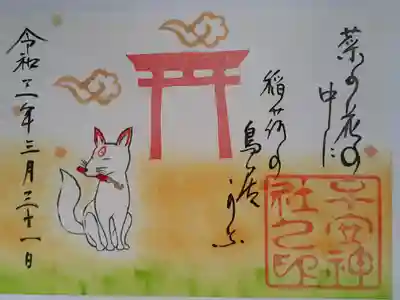 菜の花の
中に
稲荷の
鳥居かな
子安神
社之印
令和二年三月三十一日